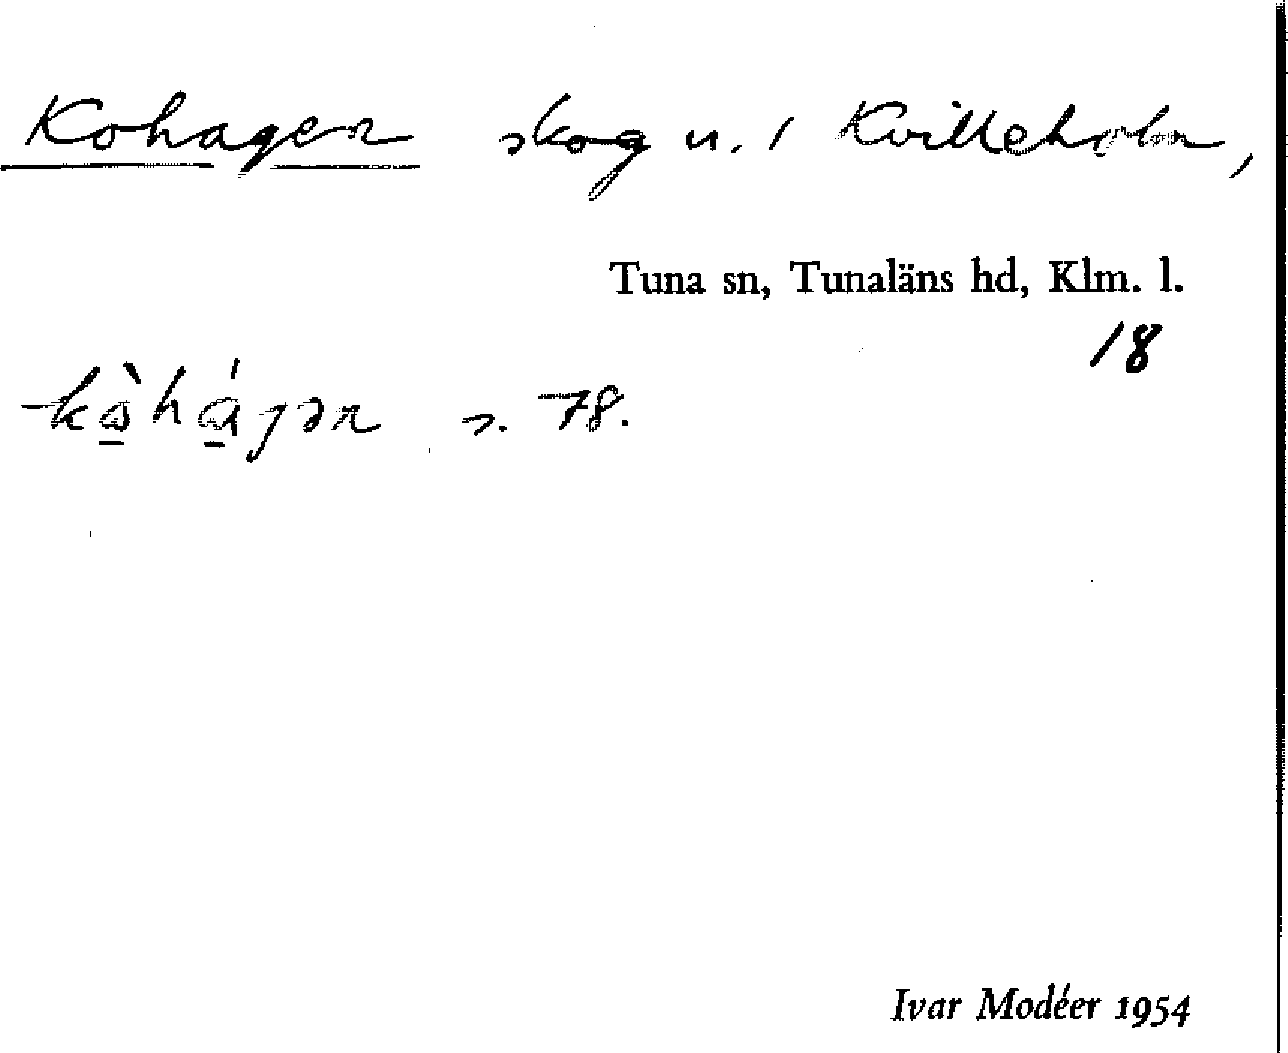 Kohagen skog u. 1 Kvilleholm,
Tuna sn, Tunaläns hd, Klm. l.
18
s. 78.
Ivar Modéer 1954